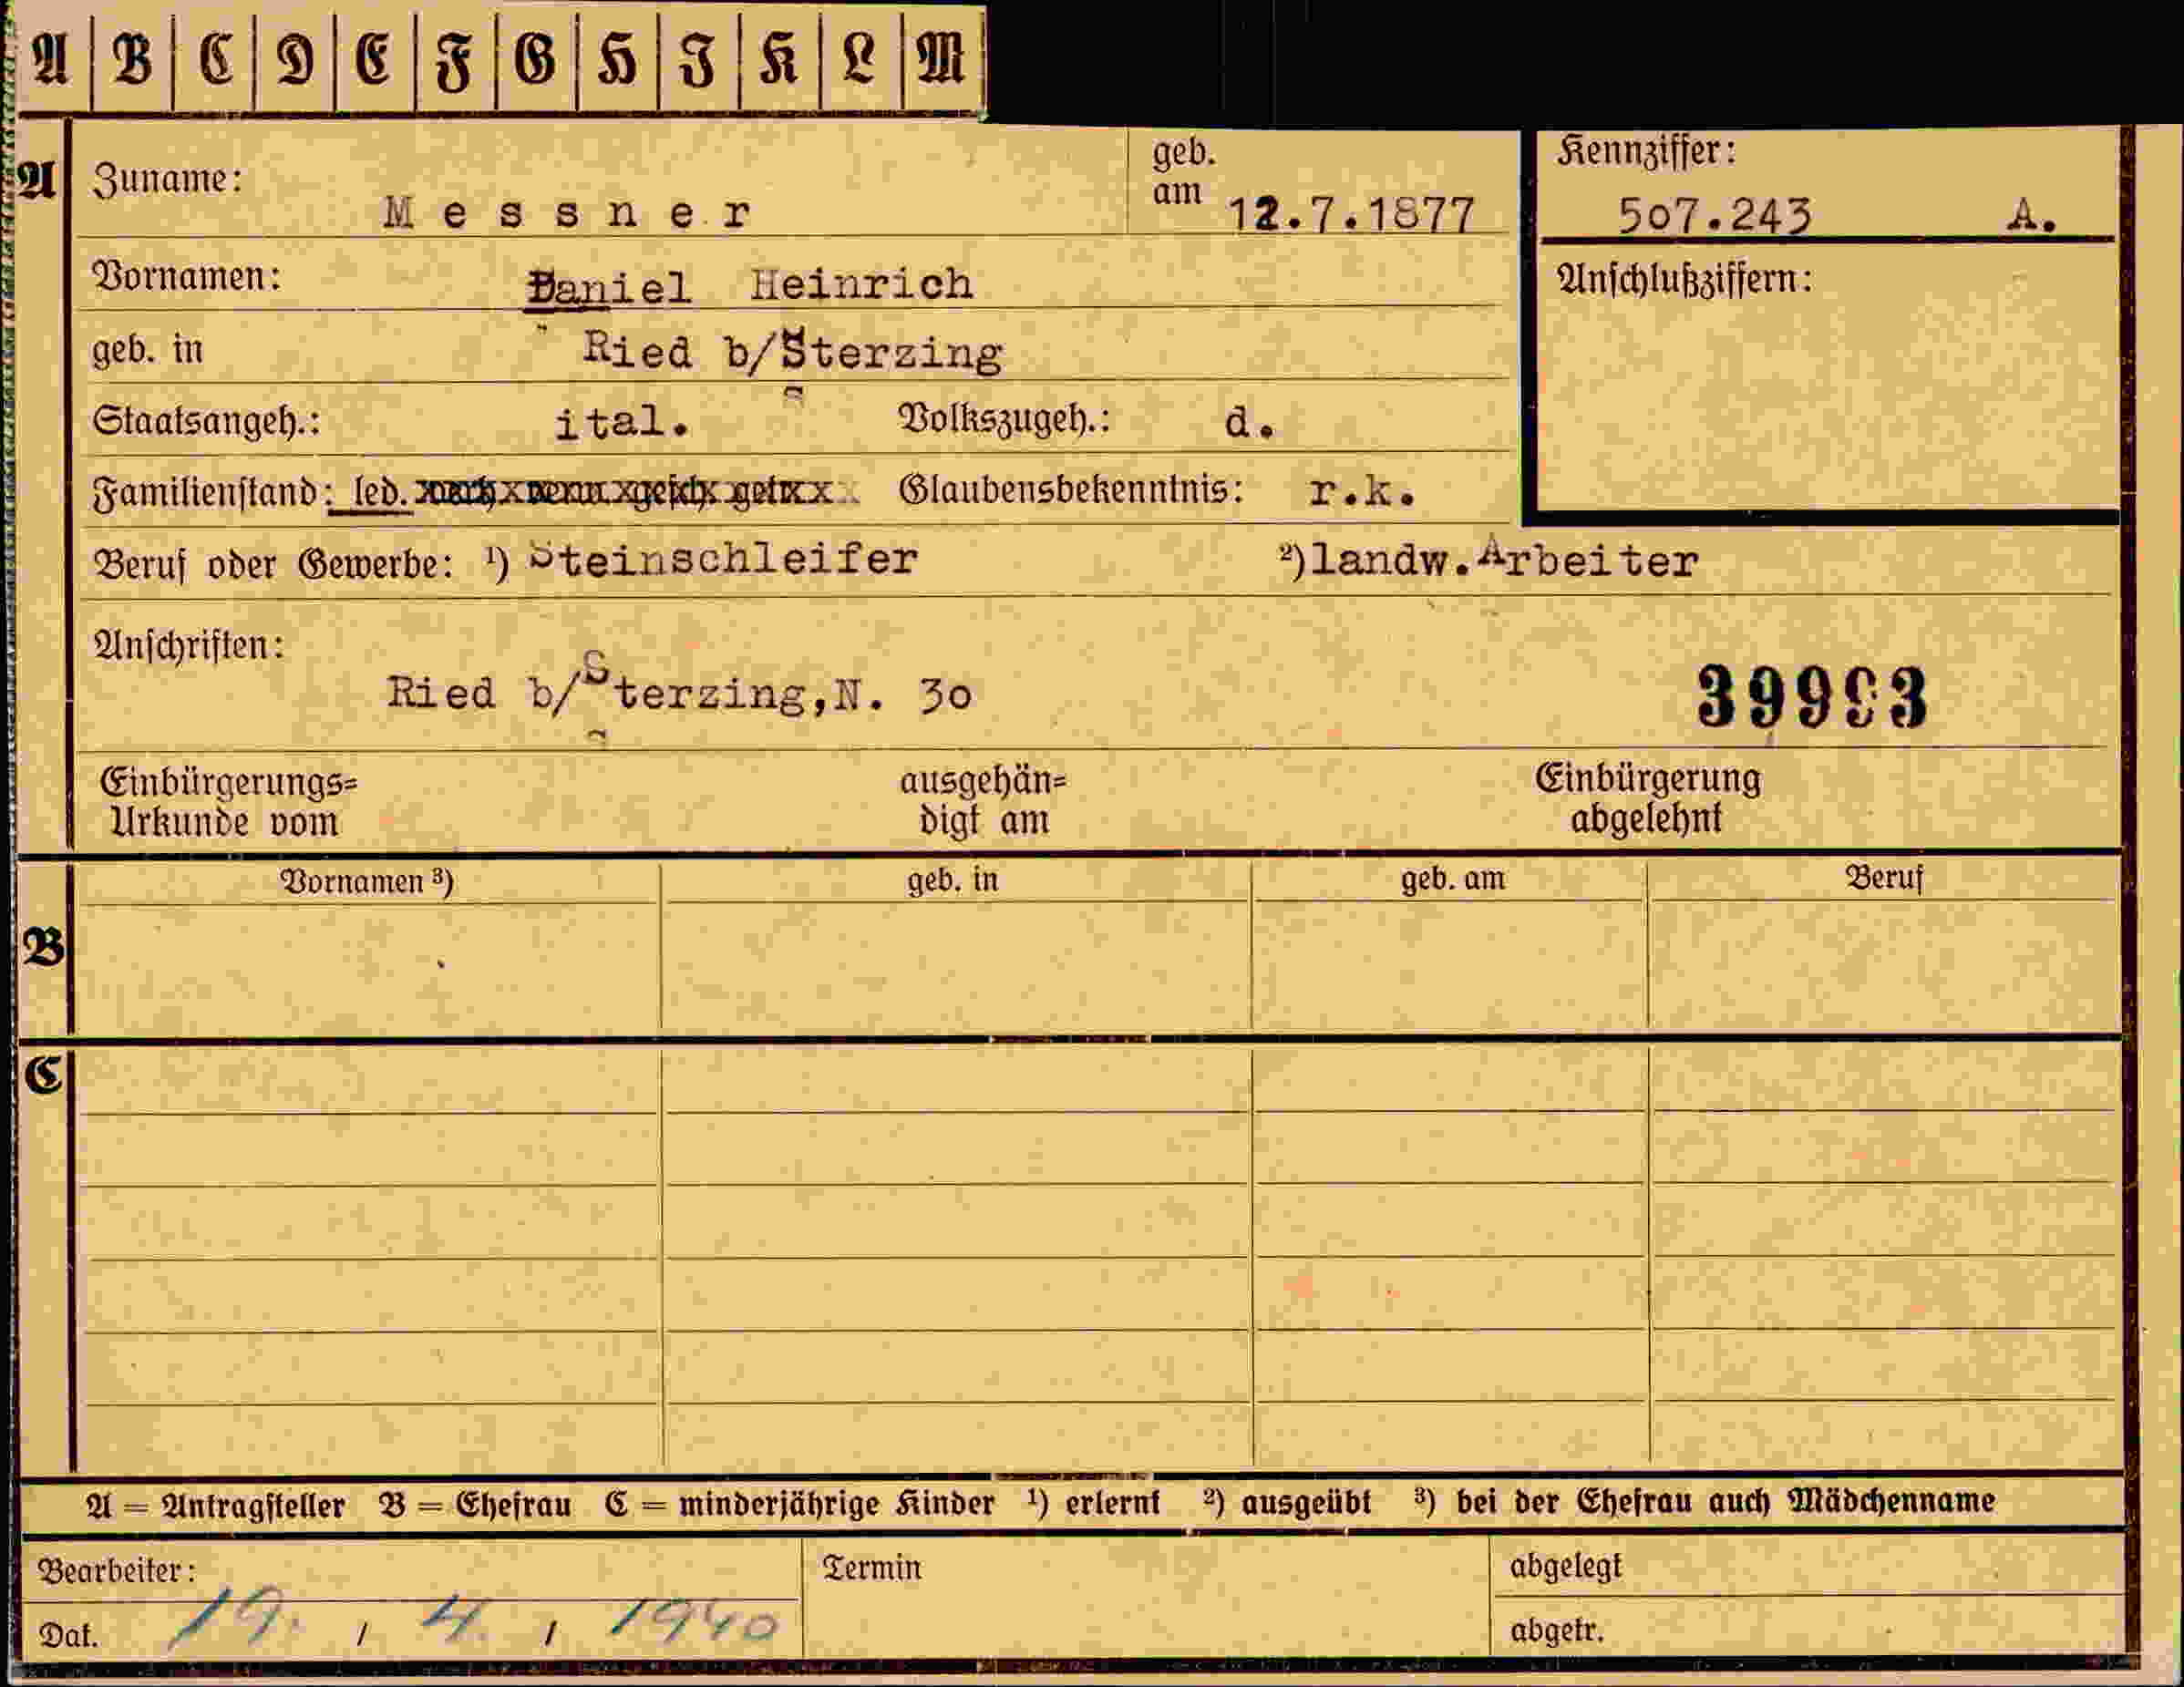 A B C D E F G H I K L M
A Zuname: Messner geb. am 12.7.1877 Kennziffer: 507.243 A.
Vornamen: Daniel Heinrich Anschlußziffern:
geb. in Ried b/Sterzing
Staatsangeh.: ital. Volkszugeh.: d.
Familienstand: led. verh. verw. gesch. getr. Glaubensbekenntnis: r.k.
Beruf oder Gewerbe: ¹) Steinschleifer ²) landw.Arbeiter
Anschriften:
Ried b/Sterzing,N. 30 39993
Einbürgerungs= ausgehän= Einbürgerung
Urkunde vom digt am abgelehnt
Vornamen ³) geb. in geb. am Beruf
B
C
A = Antragsteller B = Ehefrau C = minderjährige Kinder ¹) erlernt ²) ausgeübt ³) bei der Ehefrau auch Mädchenname
Bearbeiter: Termin abgelegt
Dat. 19. / 4. / 1940 abgetr.